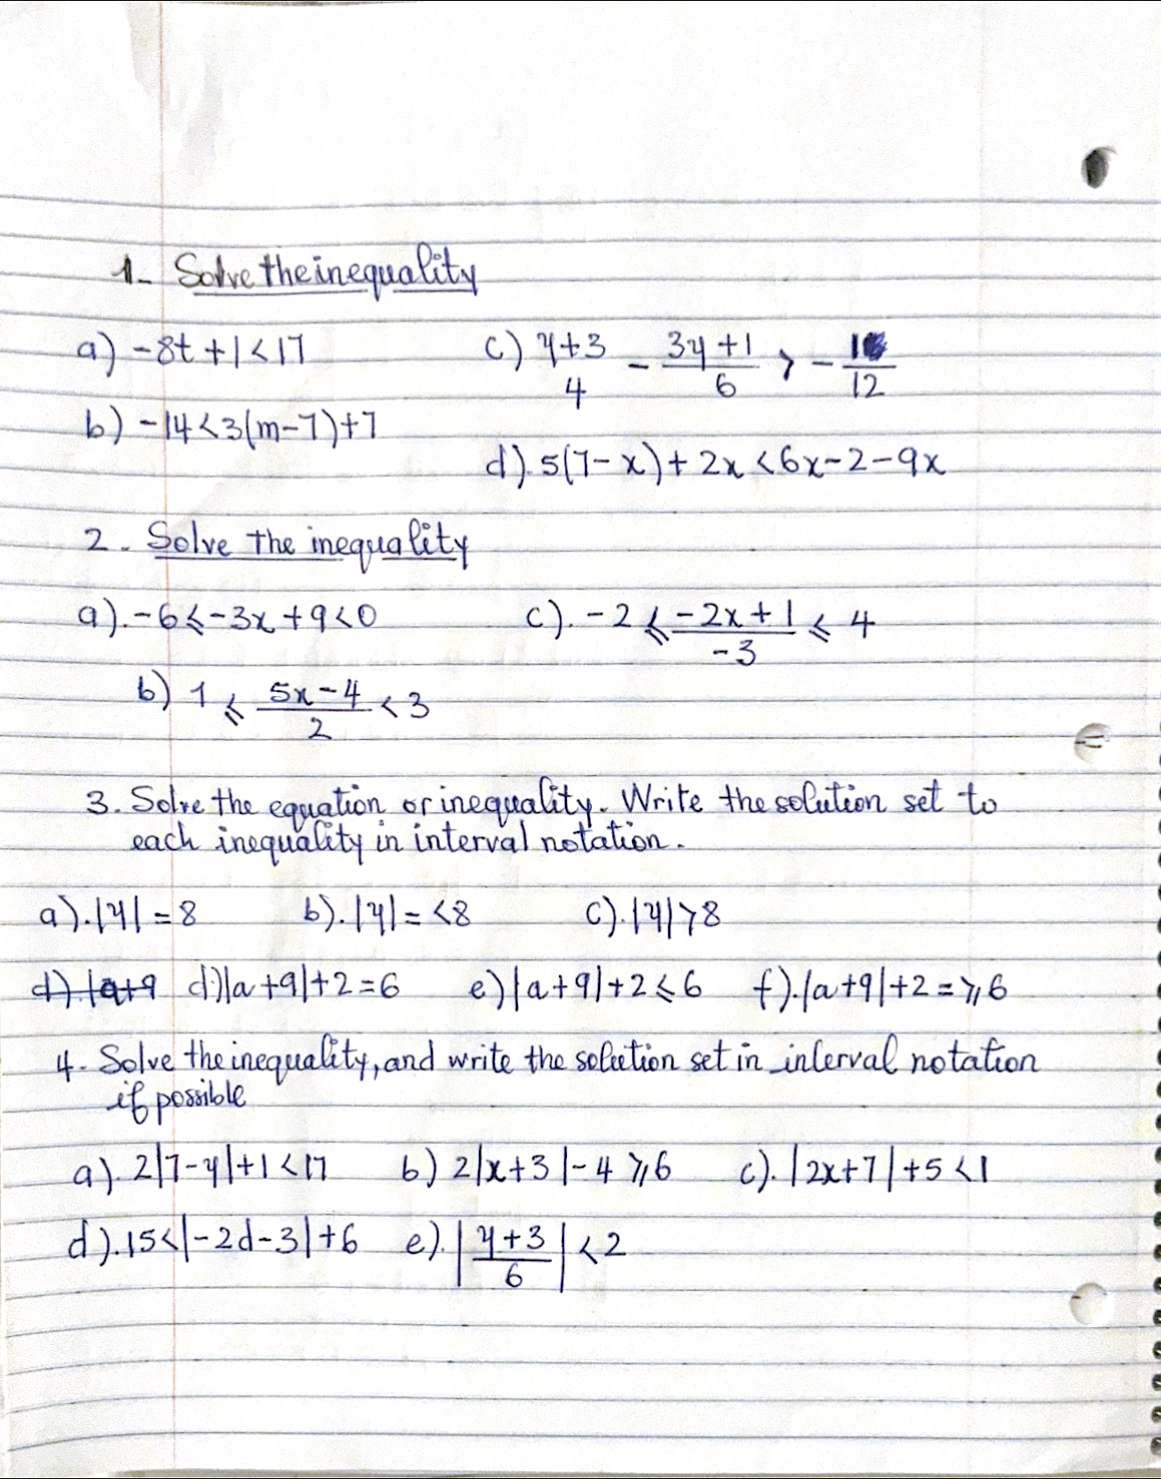 1- Solve the inequality
a) -8t +1<17 c) y+3/4 - 3y+1/6 > - 1/12
b) -14<3(m-7)+7
d). 5(7-x)+2x <6x-2-9x
2. Solve the inequality
a). -6⩽-3x+9<0 c). -2 ⩽ -2x+1/-3 ⩽ 4
b) 1 ⩽ 5x-4/2 < 3
3. Solve the equation or inequality. Write the solution set to
each inequality in interval notation.
a). |y| = 8 b). |y| = <8 c). |y|>8
d). |a+9 d.)|a+9|+2=6 e) |a+9|+2⩽6 f). |a+9|+2=⩾6
4. Solve the inequality, and write the solution set in interval notation
if possible
a). 2|7-y|+1<17 b) 2|x+3|-4⩾6 c). |2x+7|+5<1
d). 15<|-2d-3|+6 e). |y+3/6|<2